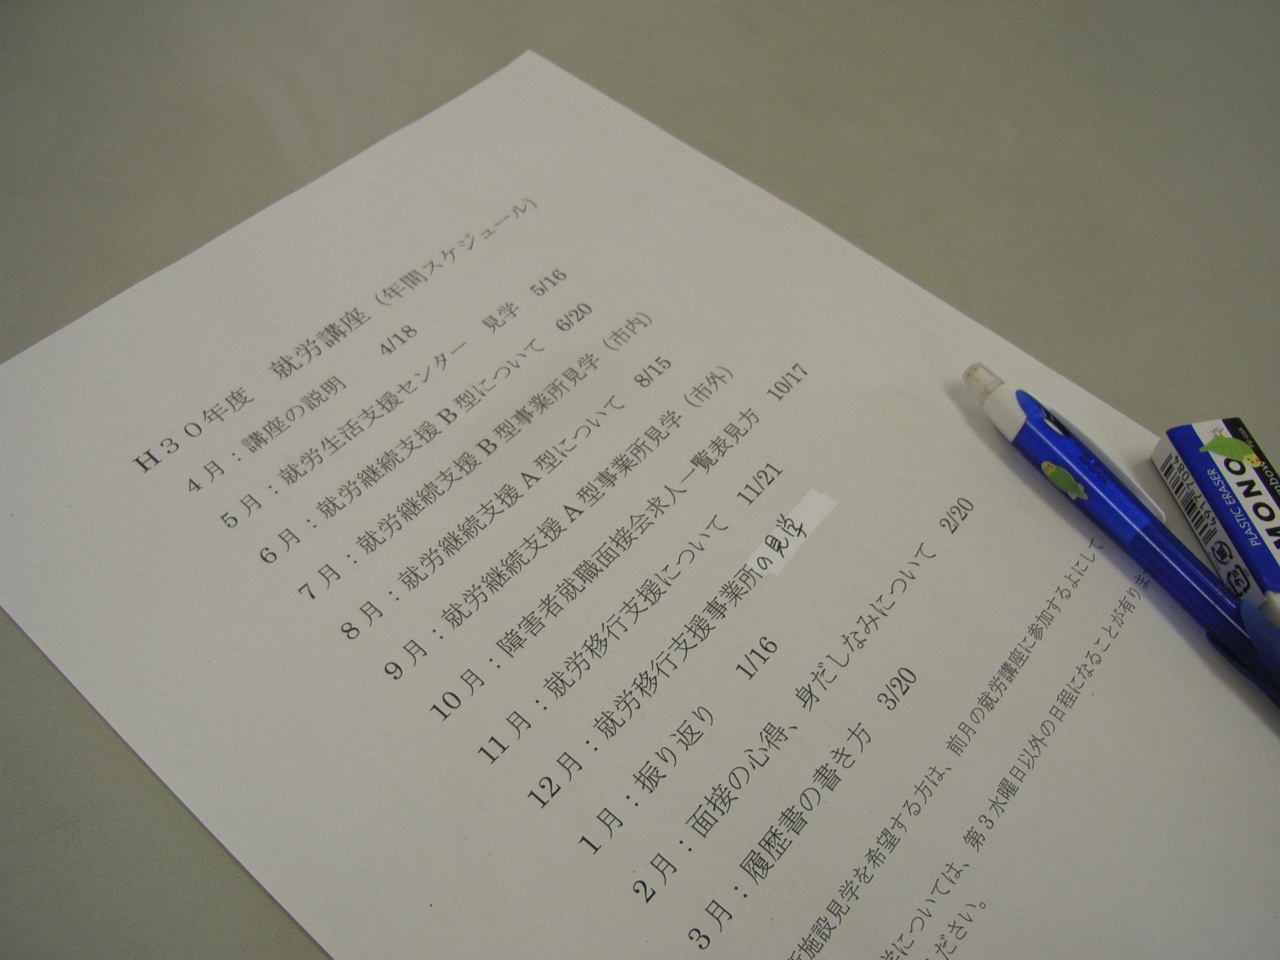 H30年度　就労講座（年間スケジュール）
4月：講座の説明　4/18
5月：就労生活支援センター　見学　5/16
6月：就労継続支援B型について　6/20
7月：就労継続支援B型事業所見学（市内）
8月：就労継続支援A型について　8/15
9月：就労継続支援A型事業所見学（市外）
10月：障害者就職面接会求人一覧表見方　10/17
11月：就労移行支援について　11/21
12月：就労移行支援事業所の見学
1月：振り返り　1/16
2月：面接の心得、身だしなみについて　2/20
3月：履歴書の書き方　3/20
施設見学を希望する方は、前月の就労講座に参加するよにして
については、第3水曜日以外の日程になることが有りま
ださい。
MONO
PLASTIC ERASER